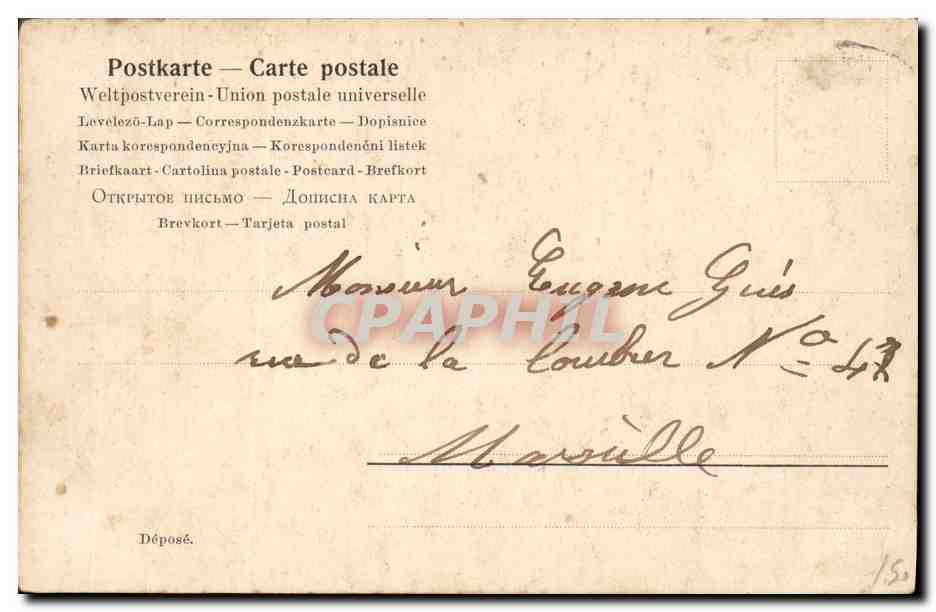 Postkarte — Carte postale
Weltpostverein - Union postale universelle
Levelező-Lap — Correspondenzkarte — Dopisnice
Karta korespondencyjna — Korespondenční listek
Briefkaart - Cartolina postale - Postcard - Brefkort
Открытое письмо — Дописна карта
Brevkort — Tarjeta postal
Monsieur Eugene
CPAPHIL
rue de la N°
Marseille
Déposé.
150